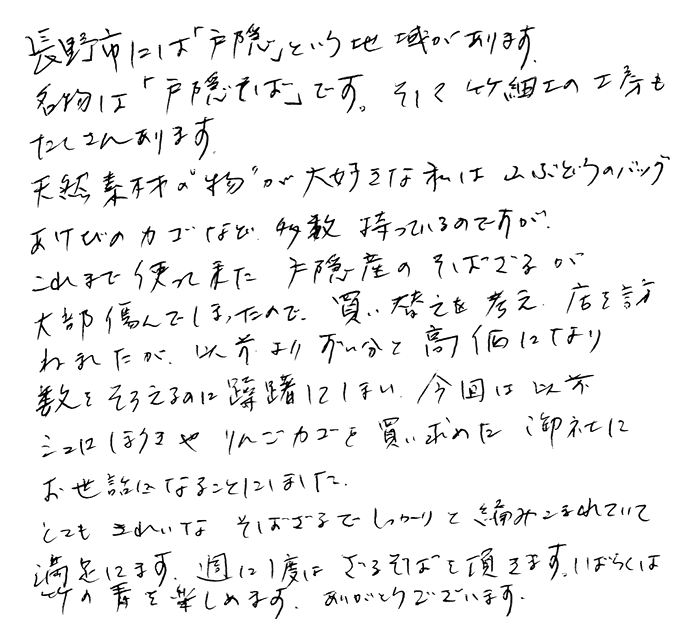 長野市には「戸隠」という地域があります。
名物は「戸隠そば」です。そして竹細工の工房も
たくさんあります。
天然素材の"物"が大好きな私は山ぶどうのバッグ
あけびのカゴなど、多数持っているのですが、
これまで使って来た戸隠産のそばざるが
大部傷んでしまったので、買い替えを考え、店を訪
ねましたが、以前よりずい分と高価になり
数をそろえるのに躊躇してしまい、今回は以前
シュロほうきやりんごカゴを買い求めた御社に
お世話になることにしました。
とてもきれいなそばざるでしっかりと編みこまれていて
満足してます。週に1度はざるそばを頂きます。しばらくは
竹の青を楽しめます。ありがとうございます。